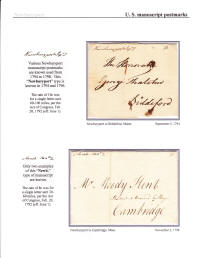 Newburyport
U. S. manuscript postmarks
Various Newburyport
manuscript postmarks
are known used from
1794 to 1798. This
"Newburyport" type is
known in 1794 and 1796.
The rate of 10c was
for a single letter sent
100-150 miles, per the
Act of Congress, Feb.
20, 1792 (eff. June 1)
The Honorable
George Thatcher
Biddeford
Newburyport to Biddeford, Maine
September 5, 1794
Only two examples
of this "Newb."
type of manuscript
are known.
The rate of 8c was for
a single letter sent
miles, per the Act
of Congress, Feb. 20,
1792 (eff. June 1)
Mr. Moody Kent
Cambridge
Newburyport to Cambridge, Mass.
November 2, 1798